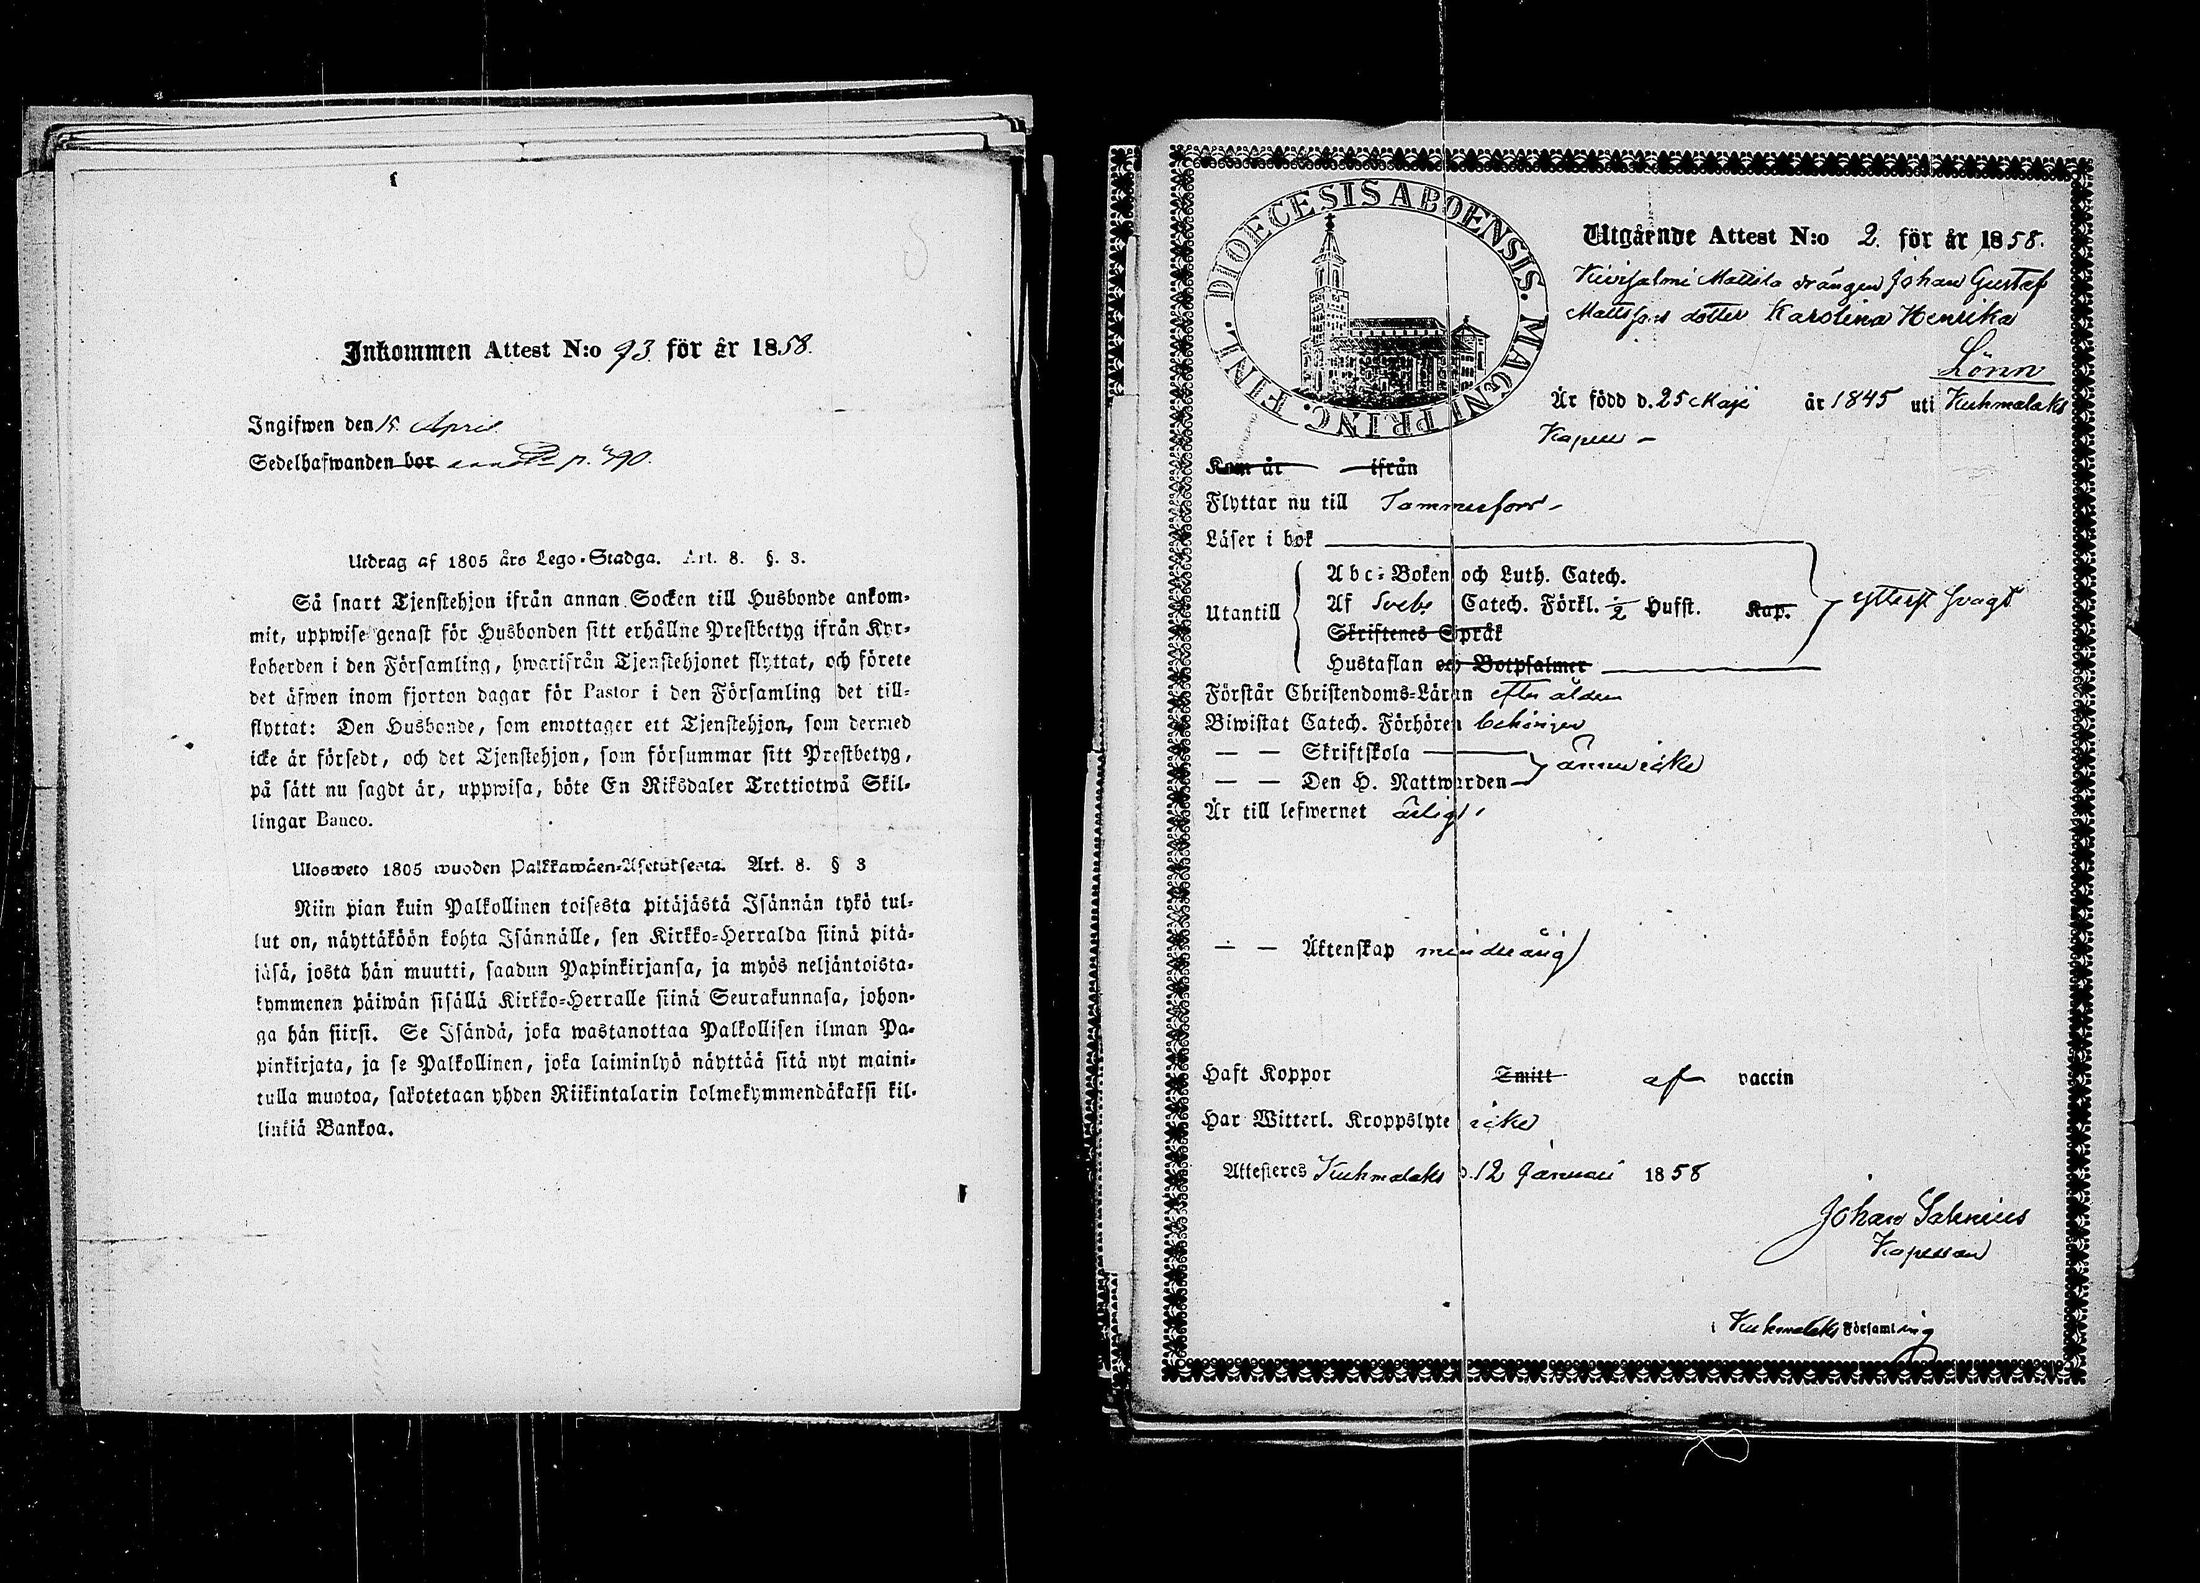 Inkommen Attest N:o 93 för år 1858.
Ingifwen den 15 April
Sedelhafwanden bor p. 490.
Utdrag af 1805 års Lego-Stadga. Art. 8. §. 3.
Så snart Tjenstehjon ifrån annan Socken till Husbonde ankom-
mit, uppwise genast för Husbonden sitt erhållne Prestbetyg ifrån Kyr-
koherden i den Församling, hwarifrån Tjenstehjonet flyttat, och förete
det äfwen inom fjorton dagar för Pastor i den Församling det till-
flyttat: Den Husbonde, som emottager ett Tjenstehjon, som dermed
icke är försedt, och det Tjenstehjon, som försummar sitt Prestbetyg,
på sätt nu sagdt är, uppwisa, böte En Riksdaler Trettiotwå Skil-
lingar Banco.
Ulosweto 1805 wuoden Palkkawäen-Asetuksesta. Art. 8. § 3
Niin pian kuin Palkollinen toisesta pitäjästä Isännän tykö tul-
lut on, näyttäköön kohta Isännälle, sen Kirkko-Herralda siinä pitä-
jäsä, josta hän muutti, saadun Papinkirjansa, ja myös neljäntoista-
kymmenen päiwän sisällä Kirkko-Herralle siinä Seurakunnasa, johon-
ga hän siirsi. Se Isändä, joka wastanottaa Palkollisen ilman Pa-
pinkirjata, ja se Palkollinen, joka laiminlyö näyttää sitä nyt maini-
tulla muotoa, sakotetaan yhden Riikintalarin kolmekymmendäkaksi kil-
linkiä Bankoa.
DIOECESIS ABOENSIS. MAGNI PRINC. FINL.
Utgående Attest N:o 2. för år 1858.
Kivisalmi Mattila drängen Johan Gustaf
Mattssons dotter Karolina Henrika
Lönn
Är född d. 25 Maji år 1845 uti Kuhmalaks
Kapell
Kom år ifrån
Flyttar nu till Tammerfors
Läser i bok
Abc-Boken och Luth. Catech.
Utantill Af Svebi Catech. Förkl. 1/2 Hufst. Kap. ytterst svagt
Skriftenes Språk
Hustaflan och Botpsalmer
Förstår Christendoms-Läran efter åldern
Biwistat Catech. Förhören behörigen
— — Skriftskola
ännu icke
— — Den H. Nattwarden
Är till lefwernet ärligt
— — Äktenskap minderårig
Haft Koppor Smitt af vaccin
Har Witterl. Kroppslyte icke
Attesteres Kuhmalaks d. 12 Januari 1858
Johan Salenius
Kapellan
i Kuhmalaks Församling